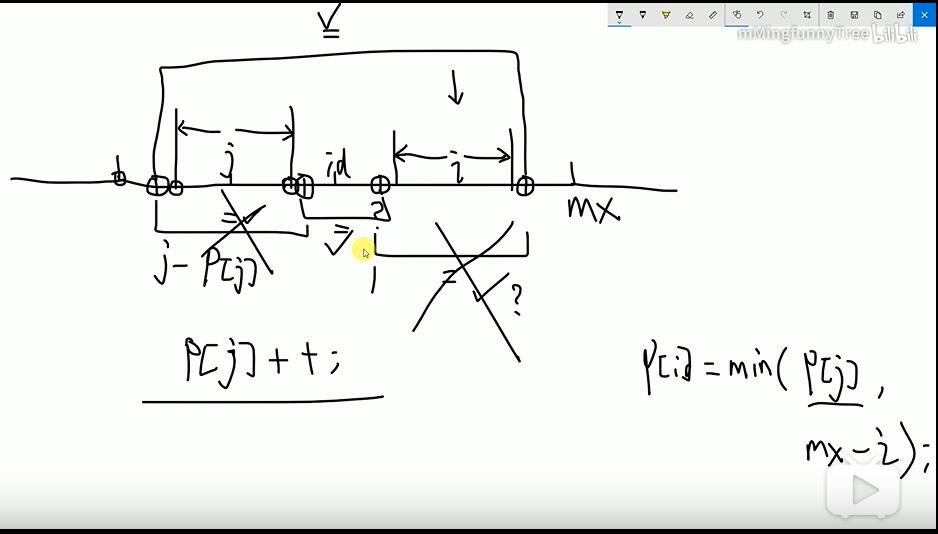 mMingfunnyTree bilibili
j
id
i
mx
=
2
=
j - P[j]
=
?
P[j]++;
P[i] = min( P[j],
mx - i);